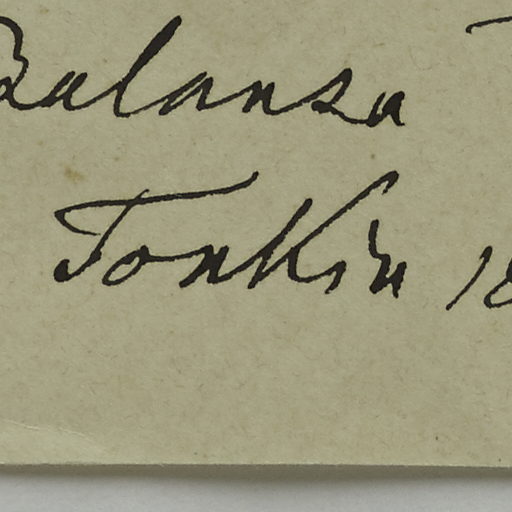 Balansa
Tonkin 18